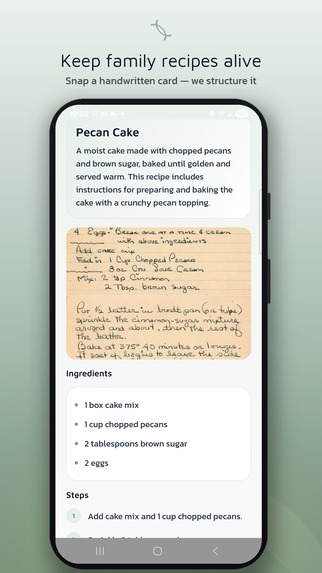 Keep family recipes alive
Snap a handwritten card — we structure it
Pecan Cake
A moist cake made with chopped pecans
and brown sugar, baked until golden and
served warm. This recipe includes
instructions for preparing and baking the
cake with a crunchy pecan topping.
4 Eggs - Break one at a time & cream
with above ingredients
Add cake mix
Fold in 1 Cup Chopped Pecans
8oz Ctn Sour Cream
Mix: 2 tsp Cinnamon
2 Tbsp. brown sugar
Put ½ batter in bundt pan (or tube)
sprinkle the cinnamon-sugar mixture
around and about, then the rest of
the batter.
Bake at 375° 40 minutes or longer.
it sort of begins to leave the side
Ingredients
1 box cake mix
1 cup chopped pecans
2 tablespoons brown sugar
2 eggs
Steps
1 Add cake mix and 1 cup chopped pecans.